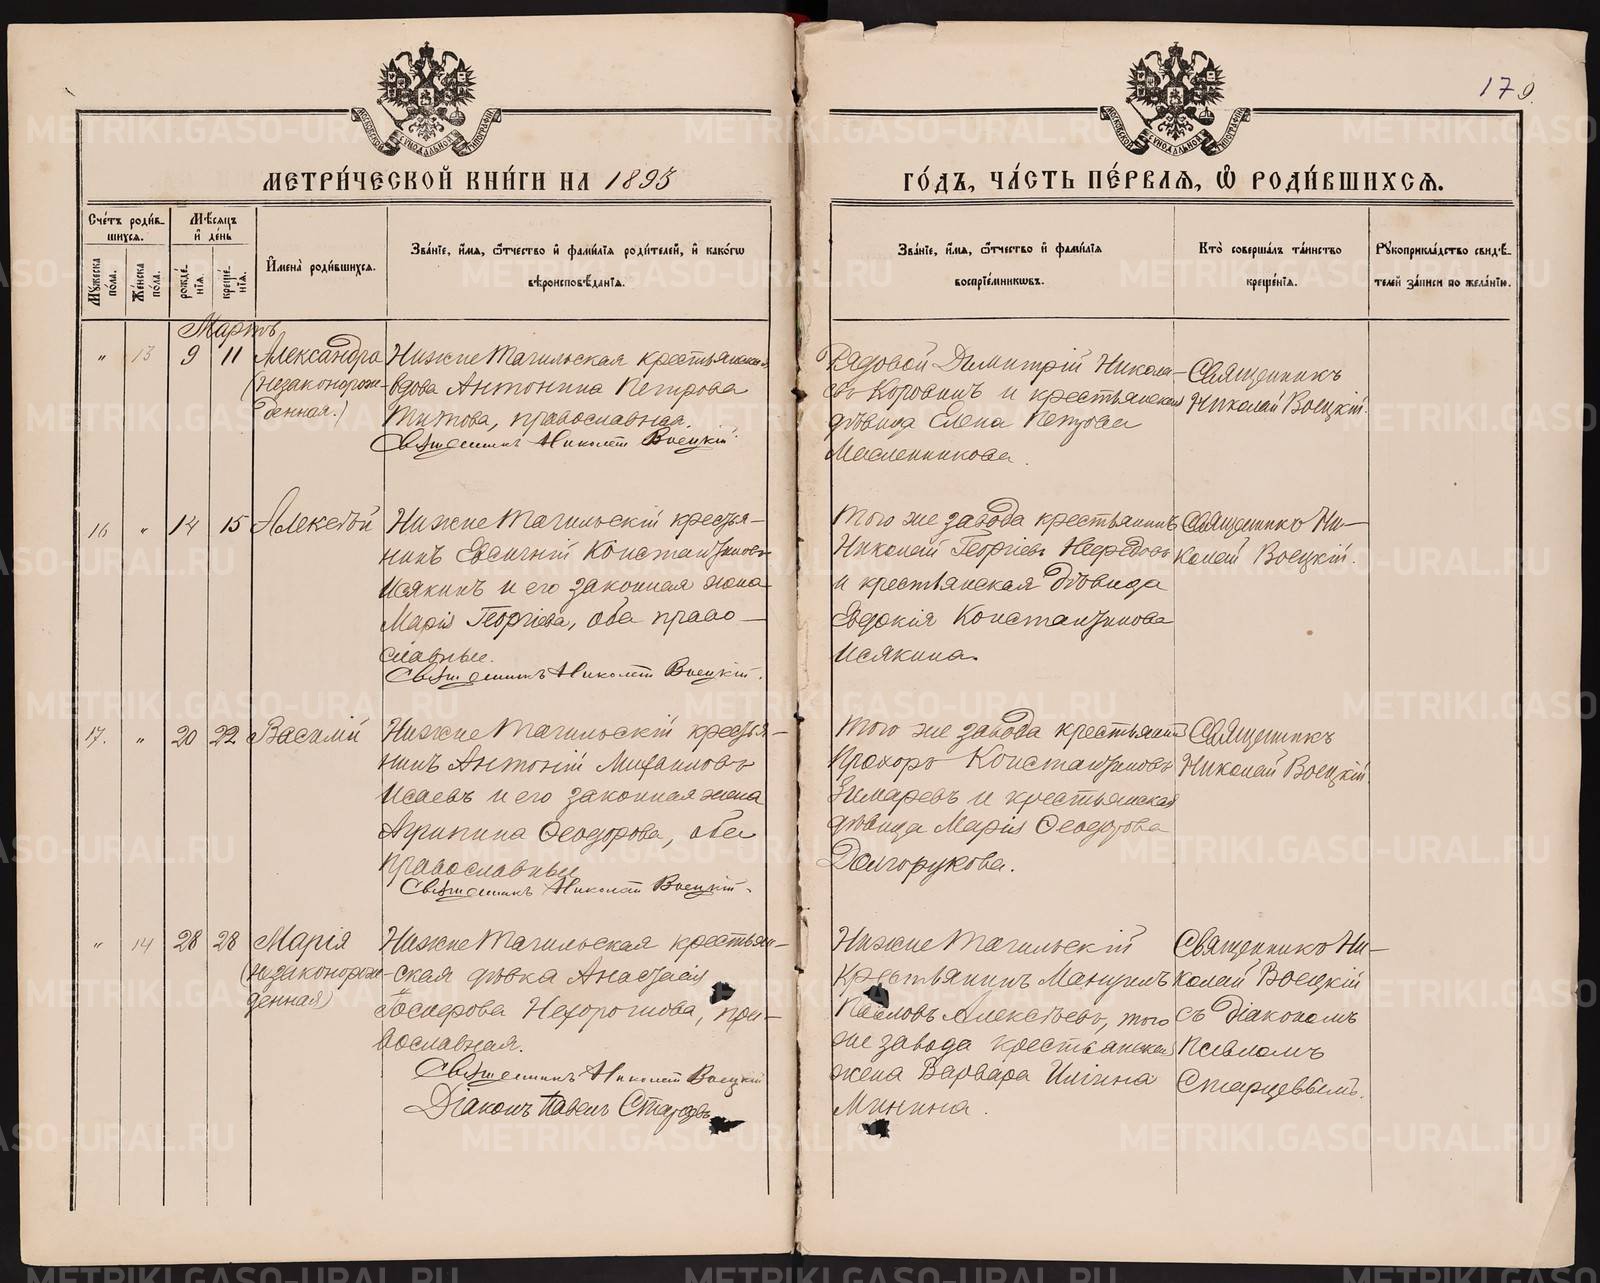 179.
МЕТРИ́ЧЕСКОЙ КНИ́ГИ НА 1893
ГО́ДЪ, ЧА́СТЬ ПЕ́РВАЯ, Ѡ҆ РОДИ́ВШИХСѦ.
Сче́тъ роди́в-
шихся.
Му́жеска по́ла.
Же́нска по́ла.
Мѣ́сяцъ
и҆ де́нь
рожде́нїѧ.
креще́нїѧ.
И҆мена̀ роди́вшихся.
Зва́нїе, и҆́мя, ѻ҆́тчество и҆ фами́лїѧ роди́телей, и҆ како́гѡ
вѣроисповѣ́данїѧ.
Зва́нїе, и҆́мя, ѻ҆́тчество и҆ фами́лїѧ
воспрїе́мниковъ.
Кто̀ соверша́лъ та́инство
креще́нїѧ.
Рꙋкоприкла́дство свидѣ́-
телей за́писи по жела́нїю.
Мартъ
" 13 9 11 Александра
(незаконорож-
денная.)
НижнеТагильская крестьянская
вдова Антонина Петрова
Титова, православная.
Священникъ Николай Воецкій.
Рядовой Димитрій Никола-
евъ Коровинъ и крестьянская
дѣвица Елена Петрова
Масленникова.
Священникъ
Николай Воецкій.
16 " 14 15 Алексѣй
НижнеТагильскій крестья-
нинъ Евсигній Константиновъ
Исякинъ и его законная жена
Марія Георгіева, оба право-
славные.
Священникъ Николай Воецкій.
Того же завода крестьянинъ
Николай Георгіевъ Нефедовъ
и крестьянская дѣвица
Евдокія Константинова
Исякина.
Священникъ Ни-
колай Воецкій.
17. " 20 22 Василій
НижнеТагильскій крестья-
нинъ Антоній Михаиловъ
Исаевъ и его законная жена
Агрипина Ѳеодорова, оба
православные
Священникъ Николай Воецкій.
Того же завода крестьянинъ
Прохоръ Константиновъ
Зимаревъ и крестьянская
дѣвица Марія Ѳеодорова
Долгорукова.
Священникъ
Николай Воецкій.
" 14 28 28 Марія
(незаконорож-
денная)
НижнеТагильская крестьян-
ская дѣвка Анастасія
Іосифова Нехорошова, пра-
вославная.
Священникъ Николай Воецкій
Діаконъ Павелъ Старцевъ
НижнеТагильскій
крестьянинъ Мануилъ
Павловъ Алексѣевъ, того
же завода крестьянская
жена Варвара Ильина
Минина.
Священникъ Ни-
колай Воецкій
съ діакономъ
Павломъ
Старцевымъ.
METRIKI.GASO-URAL.RU